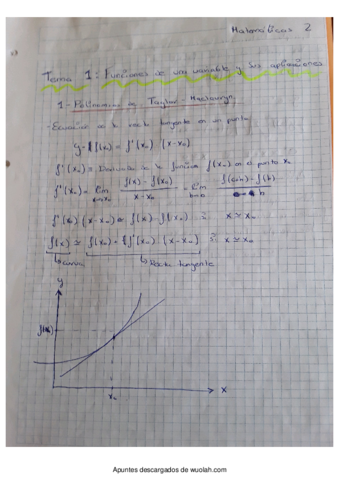 Matemáticas 2
Tema 1: Funciones de una variable y sus aplicaciones
1- Polinomios de Taylor - Maclaurin
- Ecuación de la recta tangente en un punto
y - f(x₀) = f'(x₀) (x-x₀)
f'(x₀) = Derivada de la función f(x) en el punto x₀
f'(x₀) = lim f(x) - f(x₀) / x - x₀ = lim
f'(x₀) (x-x₀) ≃ f(x) - f(x₀) si x ≃ x₀
f(x) ≃ f(x₀) + f'(x₀) · (x-x₀) si x ≃ x₀
↳ curva ↳ Recta tangente
y
f(x₀)
x₀
x
Apuntes descargados de wuolah.com